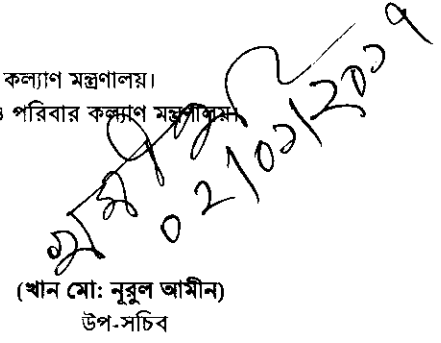 কল্যাণ মন্ত্রণালয়।
ও পরিবার কল্যাণ মন্ত্রণালয়।
(খান মো: নূরুল আমীন)
উপ-সচিব